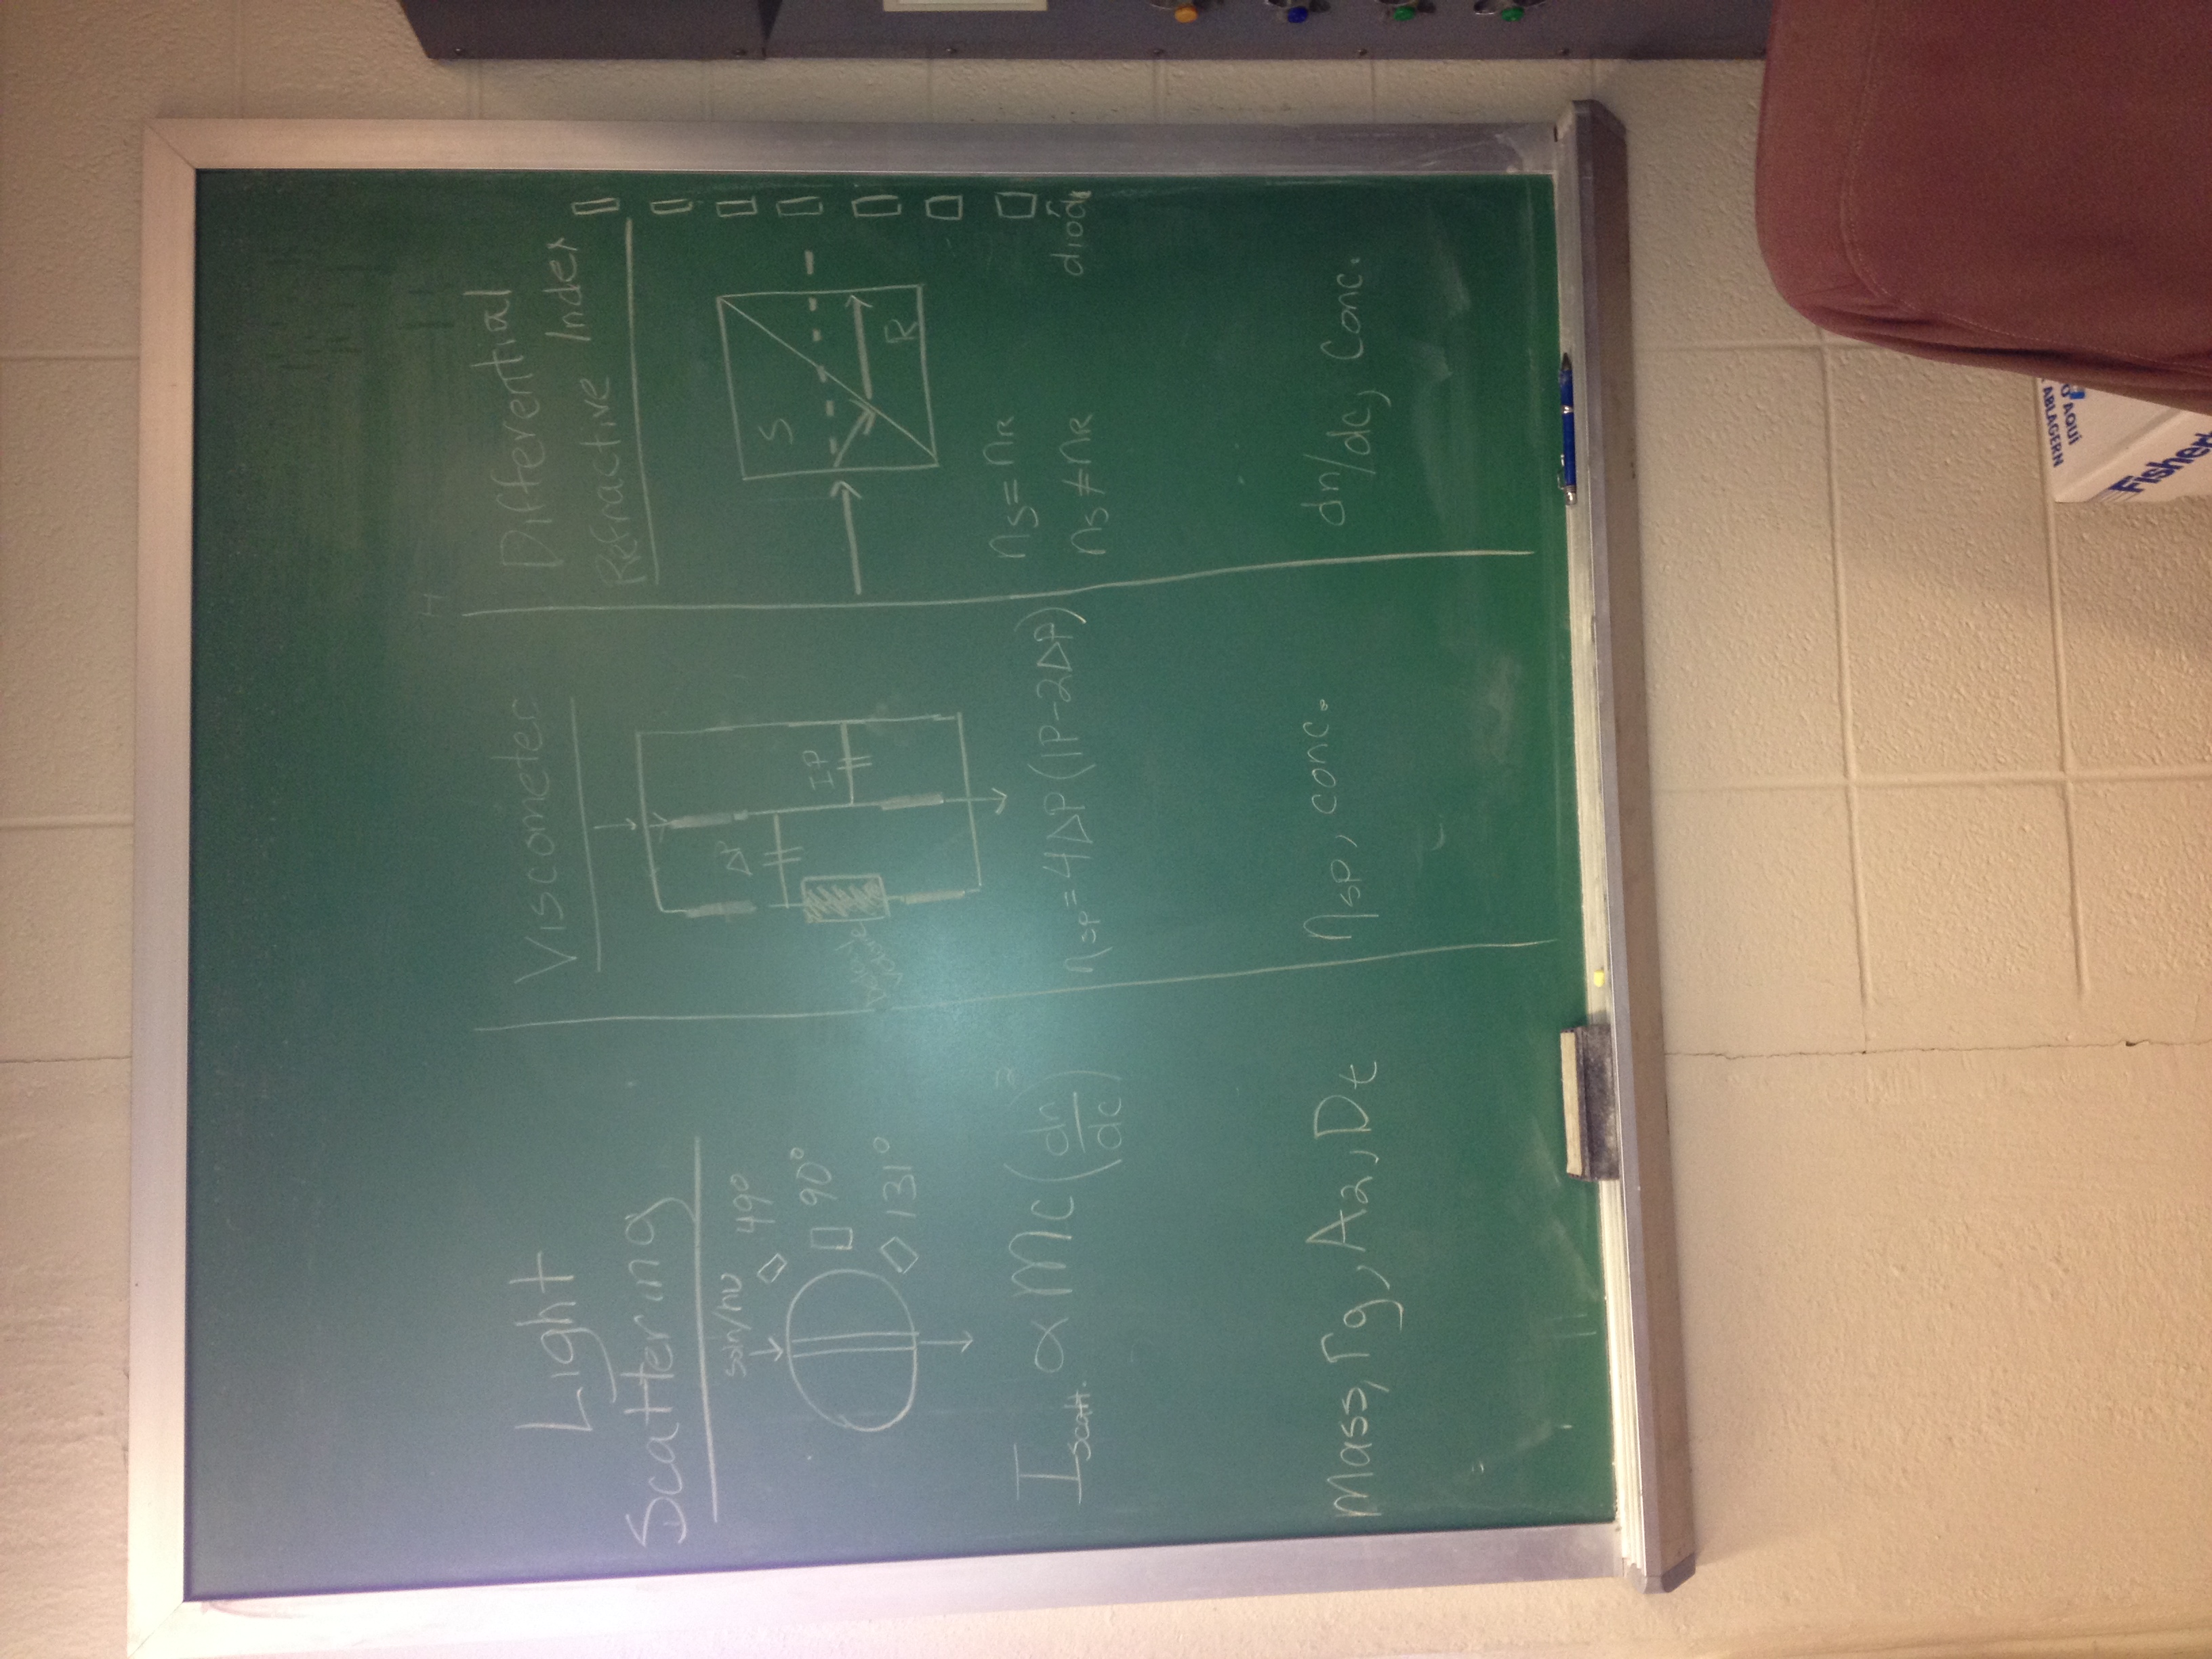 Light
Scattering
soln/hν
49°
90°
131°
I scatt. ∝ MC (dn/dc)²
Mass, rg, A2, Dt
Viscometer
ΔP
IP
Delay
Volume
ηsp = 4ΔP(IP-2ΔP)
ηsp, conc.
Differential
Refractive Index
S
R
nS = nR
nS ≠ nR
dn/dc, conc.
AQUÍ
ABLAGERN
Fisher